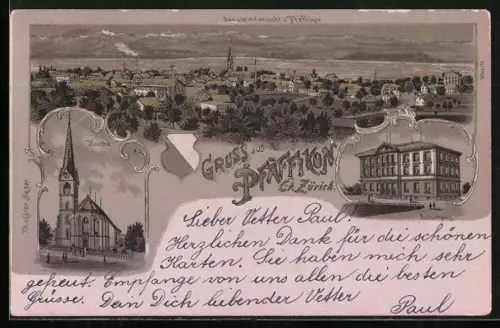 Gesammtansicht v. Pfäffikon
Gruss aus
PFÄFFIKON
Ct. Zürich.
Kirche
Schulhaus
Lieber Vetter Paul.
Herzlichen Dank für die schönen
Karten. Sie haben mich sehr
gefreut. Empfange von uns allen die besten
Grüsse. Dein Dich liebender Vetter
Paul